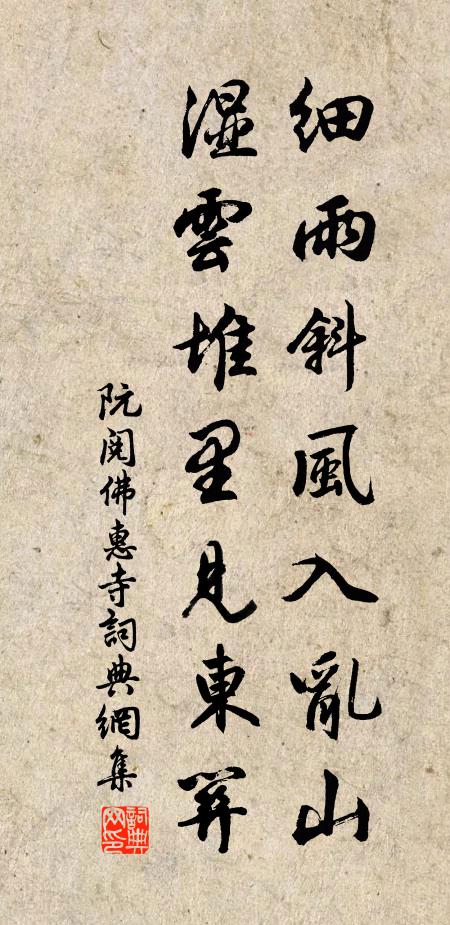 細雨斜風入亂山
濕雲堆里見東屏
阮閱佛惠寺詞典網集
詞典網印